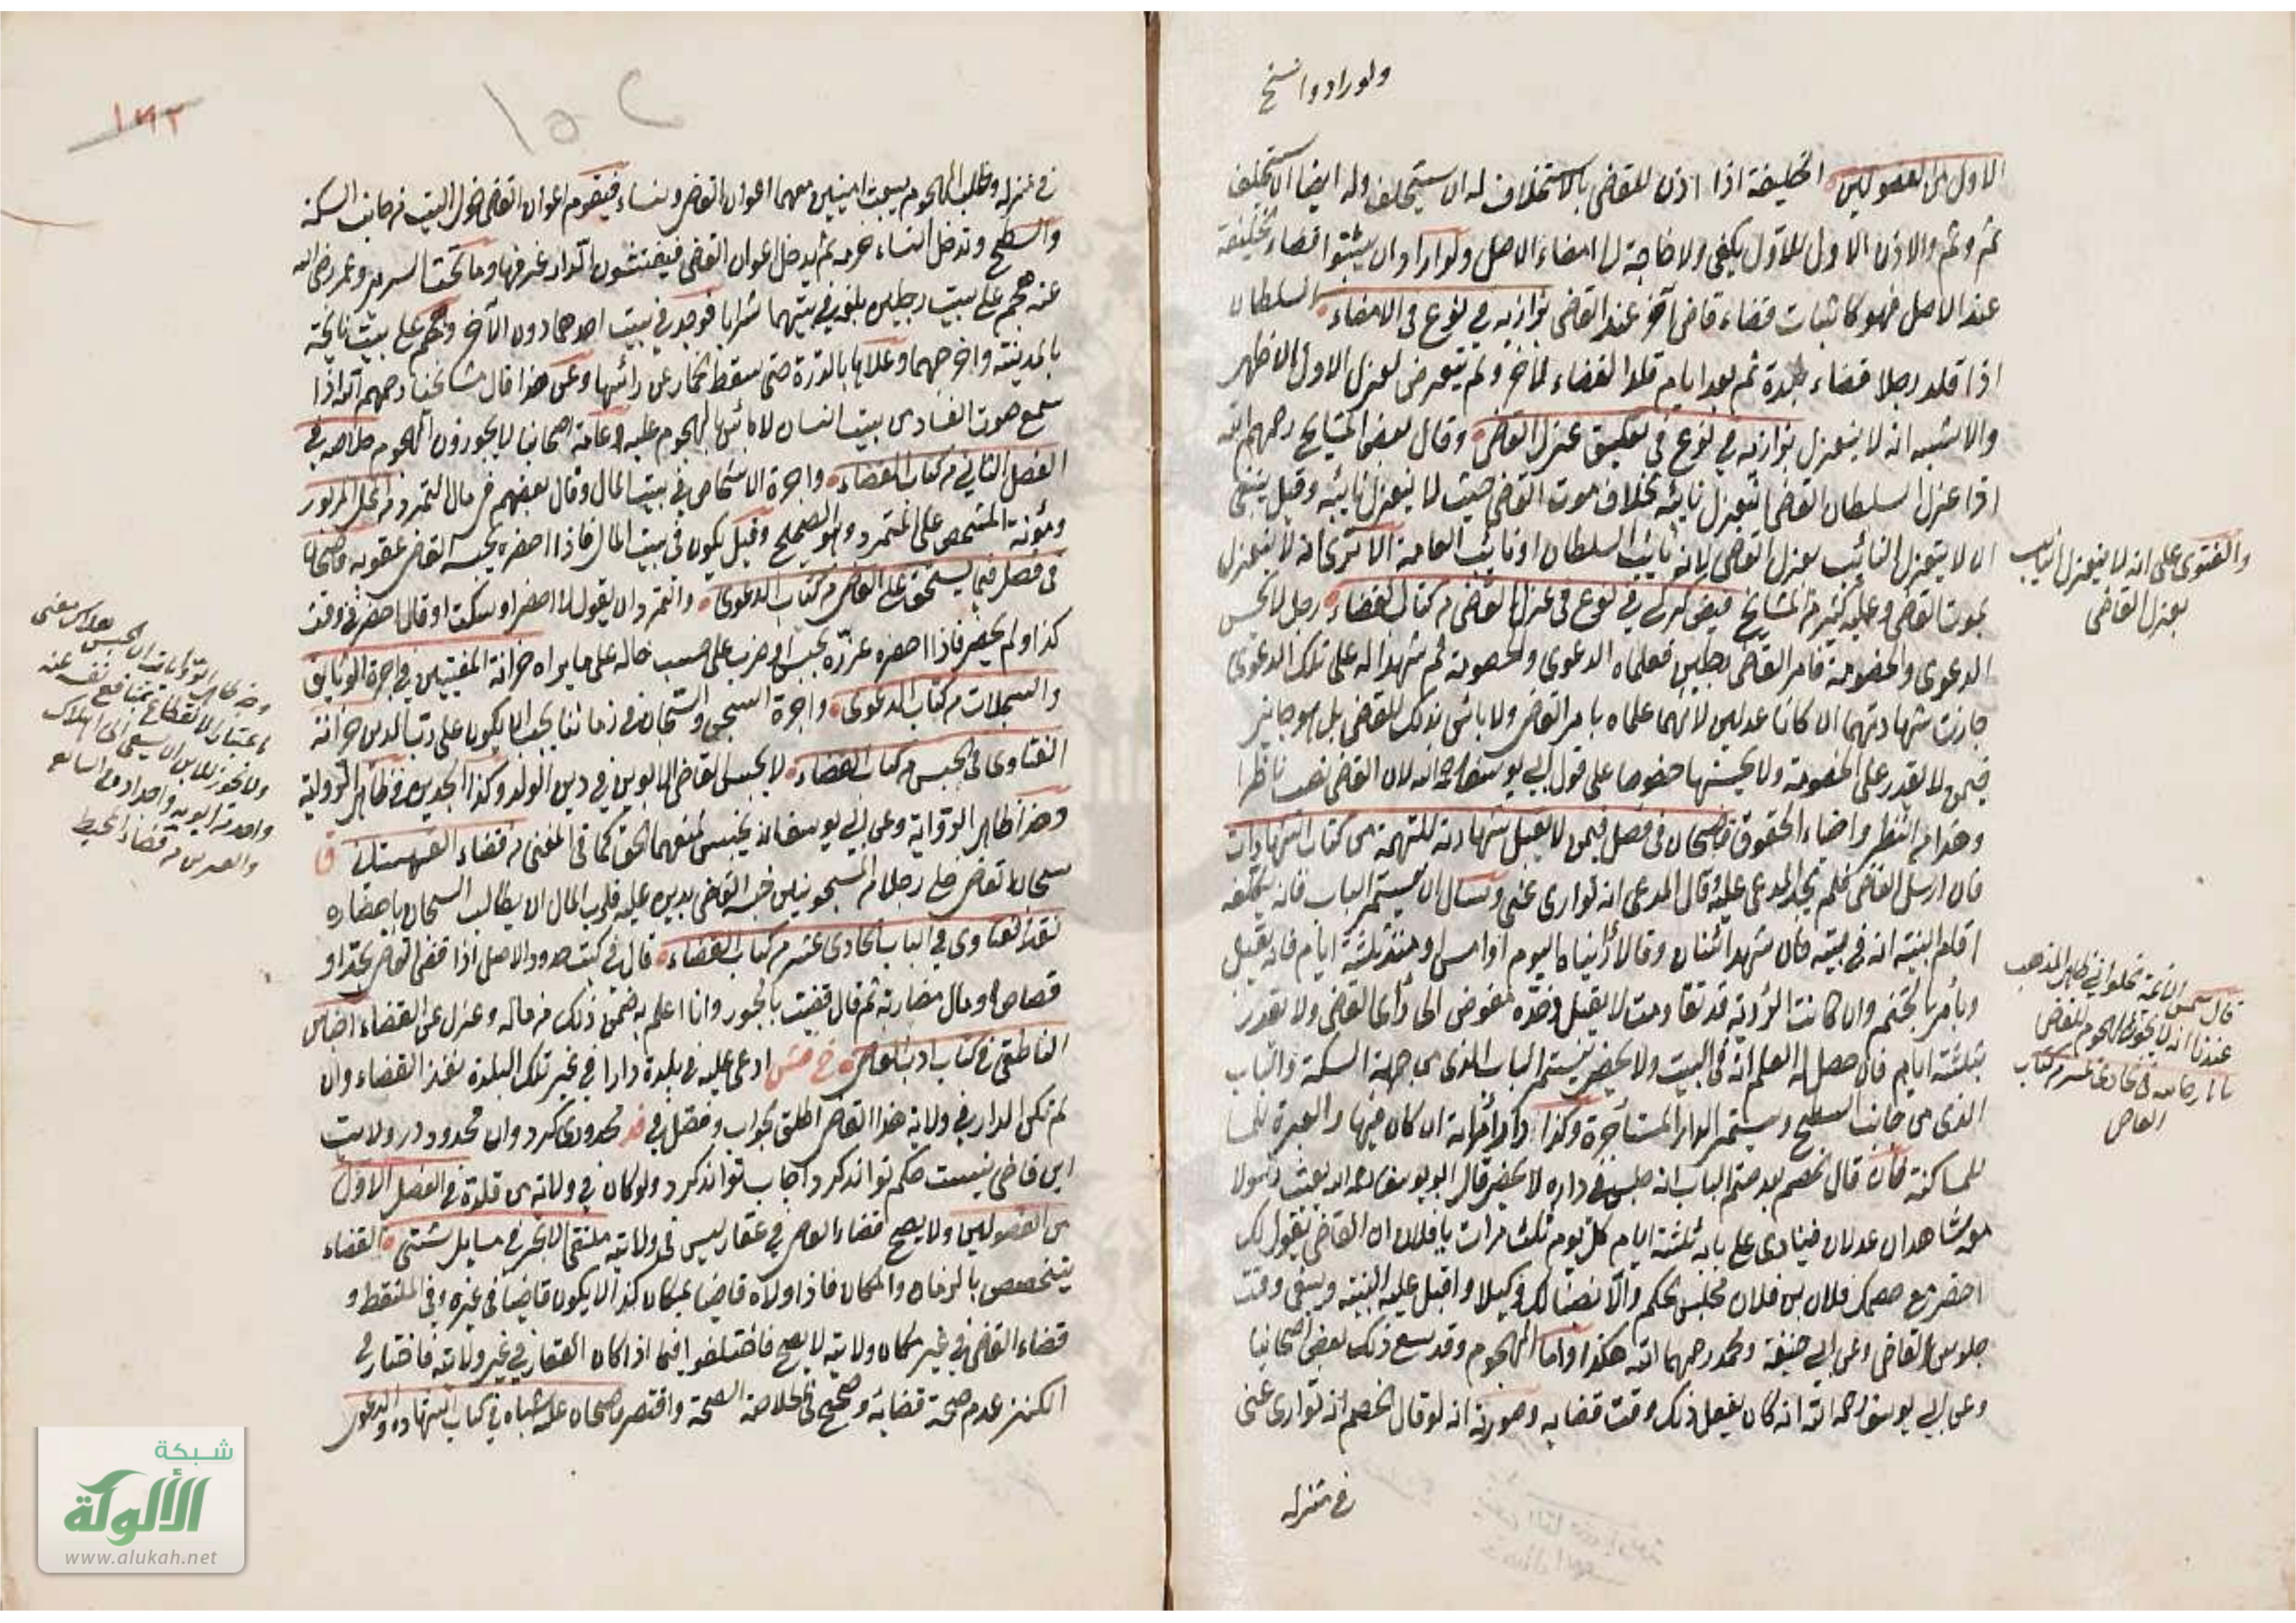 ولو رادوا نسخ
الاول من الفصولين الخليفة اذا اذن للقاضى بالاستخلاف له ان يستخلف وله ايضا ان يستخلف
ثم وثم والاذن الاول للاول يكفى ولا حاجة الى امضاء الاصل ولو ارادوا ان يثبتوا قضاء خليفة
عند الاصل فهو كاثبات قضاء قاض آخر عند القاضى بزازيه فى نوع فى الامضاء السلطان
اذا قلد رجلا قضاء بلدة ثم بعد ايام قلد القضاء لاخر ولم يتعرض لعزل الاول الاظهر
والاشبه انه لا ينعزل بزازيه فى نوع فى تعليق عزل القاضى وقال بعض المشايخ رحمهم الله
اذا عزل السلطان القاضى انعزل نائبه بخلاف موت القاضى حيث لا ينعزل نائبه وقيل ينبغى
ان لا ينعزل النائب بعزل القاضى لانه نائب السلطان او نائب العامة الا ترى انه لا ينعزل
بموت القاضى وعليه كثير من المشايخ فيض كركى فى نوع فى عزل القاضى من كتاب القضاء رجل لا يحسن
الدعوى والخصومة فامر القاضى رجلين فعلماه الدعوى والخصومة ثم شهدا له على تلك الدعوى
جازت شهادتهما ان كانا عدلين لانهما علماه بامر القاضى ولا باس بذلك للقاضى بل هو جايز
فيمن لا يقدر على الخصومة ولا يحسنها خصوصا على قول ابى يوسف رحمه الله لان القاضى نصب ناظرا
وهذا من النظر واحياء الحقوق قاضيخان فى فصل فيمن لا يقبل شهادته للتهمة من كتاب الشهادات
فان ارسل القاضى فلم يجد المدعى عليه وقال المدعى انه توارى عنى وسال ان يستمر الباب فانه يكلفه
اقامة البينة انه فى بيته فان شهد اثنان وقالا رأيناه اليوم او امس او منذ ثلثة ايام فانه يقبل
ويأمر بالختم وان كانت الرؤية قد تقادمت لا يقبل وحده مفوض الى رأى القاضى ولا يقدر
بثلثة ايام فان حصل له العلم انه فى البيت ولا يحضر يستمر الباب الذى من جهة السكة والباب
الذى من جانب السطح ويستمر الدار المستأجرة وكذا دار امرأته ان كان فيها والعبرة
للمساكنة فان قال الخصم بعد ختم الباب انه جلس فى داره لا يحضر قال ابو يوسف رحمه الله يبعث رسولا
معه شاهدان عدلان فينادى على بابه ثلثة ايام كل يوم ثلث مرات يا فلان ان القاضى يقول لك
احضر مع خصمك فلان بن فلان مجلس الحكم والا نصبنا لك وكيلا واقبل عليه البينة وقت
جلوس القاضى وعن ابى حنيفة ومحمد رحمهما الله هكذا واما الهجوم وقد سع ذلك بعض اصحابنا
وعن ابى يوسف رحمه الله انه كان يفعل ذلك وقت قضايه وصورته انه لو قال الخصم انه توارى عنى
فى منزله
والفتوى على انه لا ينعزل النايب
بعزل القاضى
قال شمس الائمة الحلوانى ظاهر المذهب
عندنا انه لا يجوز الهجوم للقاضى
تاتارخانيه فى الحادى عشر من كتاب
القاضى
١٥٢
١٦٢
فى منزله وطلب الهجوم يبعث امينين ومعهما اعوان القاضى ونساء فيقوم اعوان القاضى حول البيت من جانب السكة
والسطح وتدخل النساء حرمه ثم يدخل اعوان القاضى فيفتشون الدار غرفها وما تحت السرير وعمر رضى الله
عنه هجم على بيت رجلين بلغه ان فى بيتهما شرابا فوجد فى بيت احدهما دون الآخر وهجم على بيت نايحة
بالمدينة واخرجهما وعلاها بالدرة حتى سقط الخمار عن رأسها وعن هذا قال مشايخنا رحمهم الله اذا
سمع صوت الفساد من بيت انسان لا بأس بالهجوم عليه وعامة اصحابنا لا يجوزون الهجوم خلاصه فى
الفصل الثانى من كتاب القضاء واجرة الاشخاص فى بيت المال وقال بعضهم فى مال المتمرد من المحل المزبور
ومؤنة المشخص على المتمرد وهو الصحيح وقيل يكون فى بيت المال فاذا احضره يحبسه القاضى عقوبة قاضيخان
فى فصل فيما يستحق على القاضى من كتاب الدعوى والتمرد ان يقول لا احضر او سكت او قال احضر فى وقت
كذا ولم يحضر فاذا احضره عزره بحبس او ضرب على حسب حاله على ما يراه خزانة المفتيين فى اجرة الوثايق
والسجلات من كتاب الدعوى واجرة السجن والسجان فى زماننا يجب ان يكون على رب الدين خزانة
الفتاوى فى الحبس من كتاب القضاء لا يحبس القاضى الابوين فى دين الولد وكذا الجدين فى ظاهر الرواية
وهذا ظاهر الرواية وعن ابى يوسف انه يحبس لمنعهما الحق كما فى المغنى من قضاء القهستانى ق
سجان القاضى خلى رجلا من المسجونين حبسه القاضى بدين عليه فلرب المال ان يطالب السجان باحضاره
نقد الفتاوى فى الباب الحادى عشر من كتاب القضاء قال فى كتب حدود الاصل اذا قضى القاضى بحد او
قصاص او مال مضاربة ثم قال قضيت بالجور وانا اعلم به ضمن ذلك من ماله وعزل عن القضاء اجناس
الناطفى فى كتاب ادب القاضى ادعى عليه فى بلدة دارا فى غير تلك البلدة نفذ القضاء وان
لم تكن الدار فى ولاية هذا القاضى اطلق الجواب وفصل فى محدودى كرد وان محدود در ولايت
اين قاضى نيست حكم تواند كرد اجاب تواند كرد ولو كان فى ولاية من قلده فى الفصل الاول
من الفصولين ولا يصح قضاء القاضى فى عقار ليس فى ولايته ملتقى الابحر فى مسايل شتى القضاء
يتخصص بالزمان والمكان فاذا ولاه قاضيا بمكان كذا لا يكون قاضيا فى غيره وفى الملتقط و
قضاء القاضى فى غير مكان ولايته لا يصح فاختلفوا فيما اذا كان العقار فى غير ولايته فاختار فى
الكنز عدم صحة قضائه وصحح فى الخلاصة الصحة واقتصر قاضيخان عليه اشباه فى كتاب الشهاده والدعوى
ولا يجوز للابن ان يسعى الى اهلاك
واحد من ابويه واجداده
من قضاء المحيط
شبكة
الألوكة
www.alukah.net